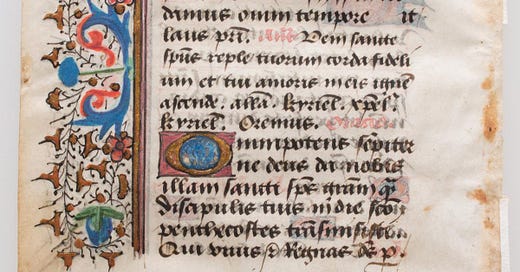 damus omni tempore it
laus pri. Veni sancte
sp̄us reple tuorum corda fideli
um et tui amoris in eis ignē
ascende. alla. kyriel. xpel.
kyriel. Oremus.
Omnipotens sempiter
ne deus da nobis
illam sancti sp̄s grām q̄
discipulis tuis in die scōn
penthecostes transmisisti
Qui vivis & Regnas ds̄ p.